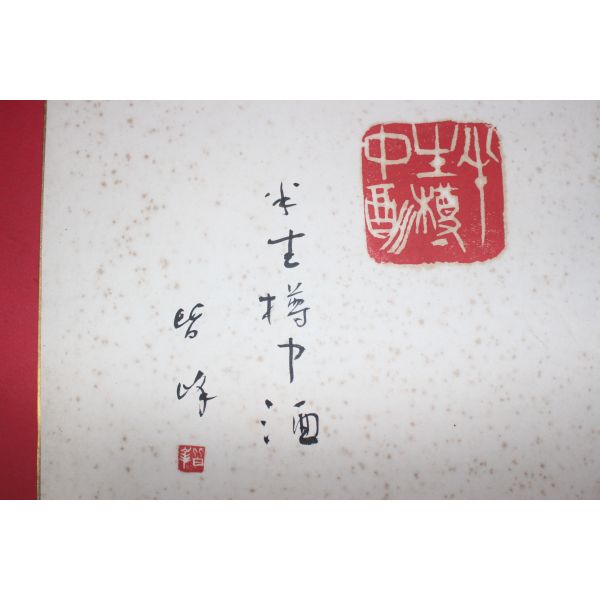 半
生樽
中酒
半生樽中酒
皆峰